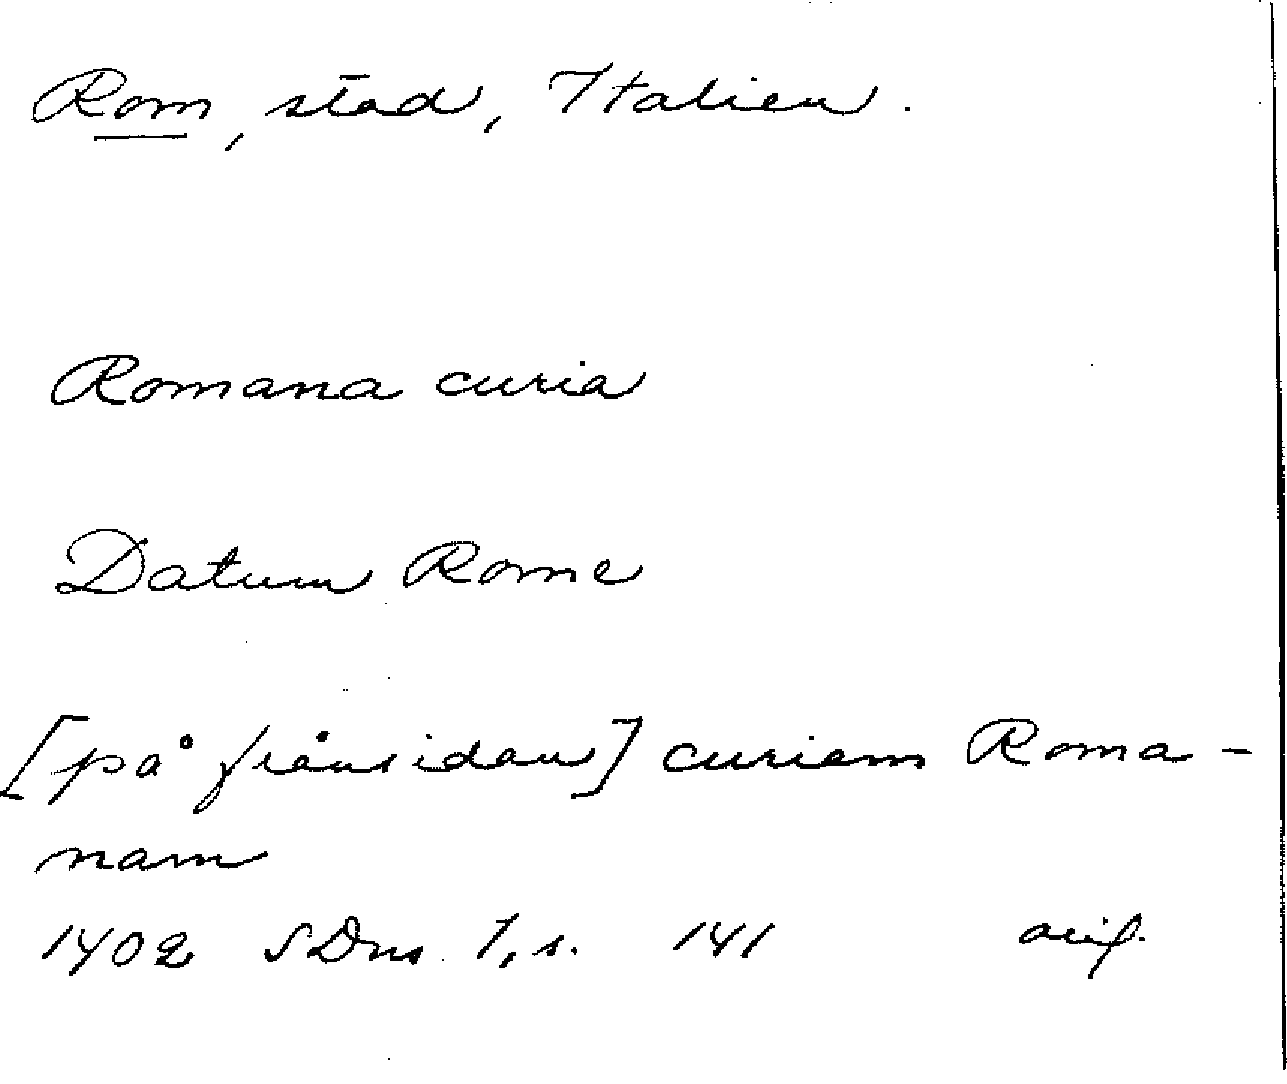 Rom, stad, Italien.
Romana curia
Datum Rome
[på frånsidan] curiam Roma-
nam
1402 SDns 1, s. 141